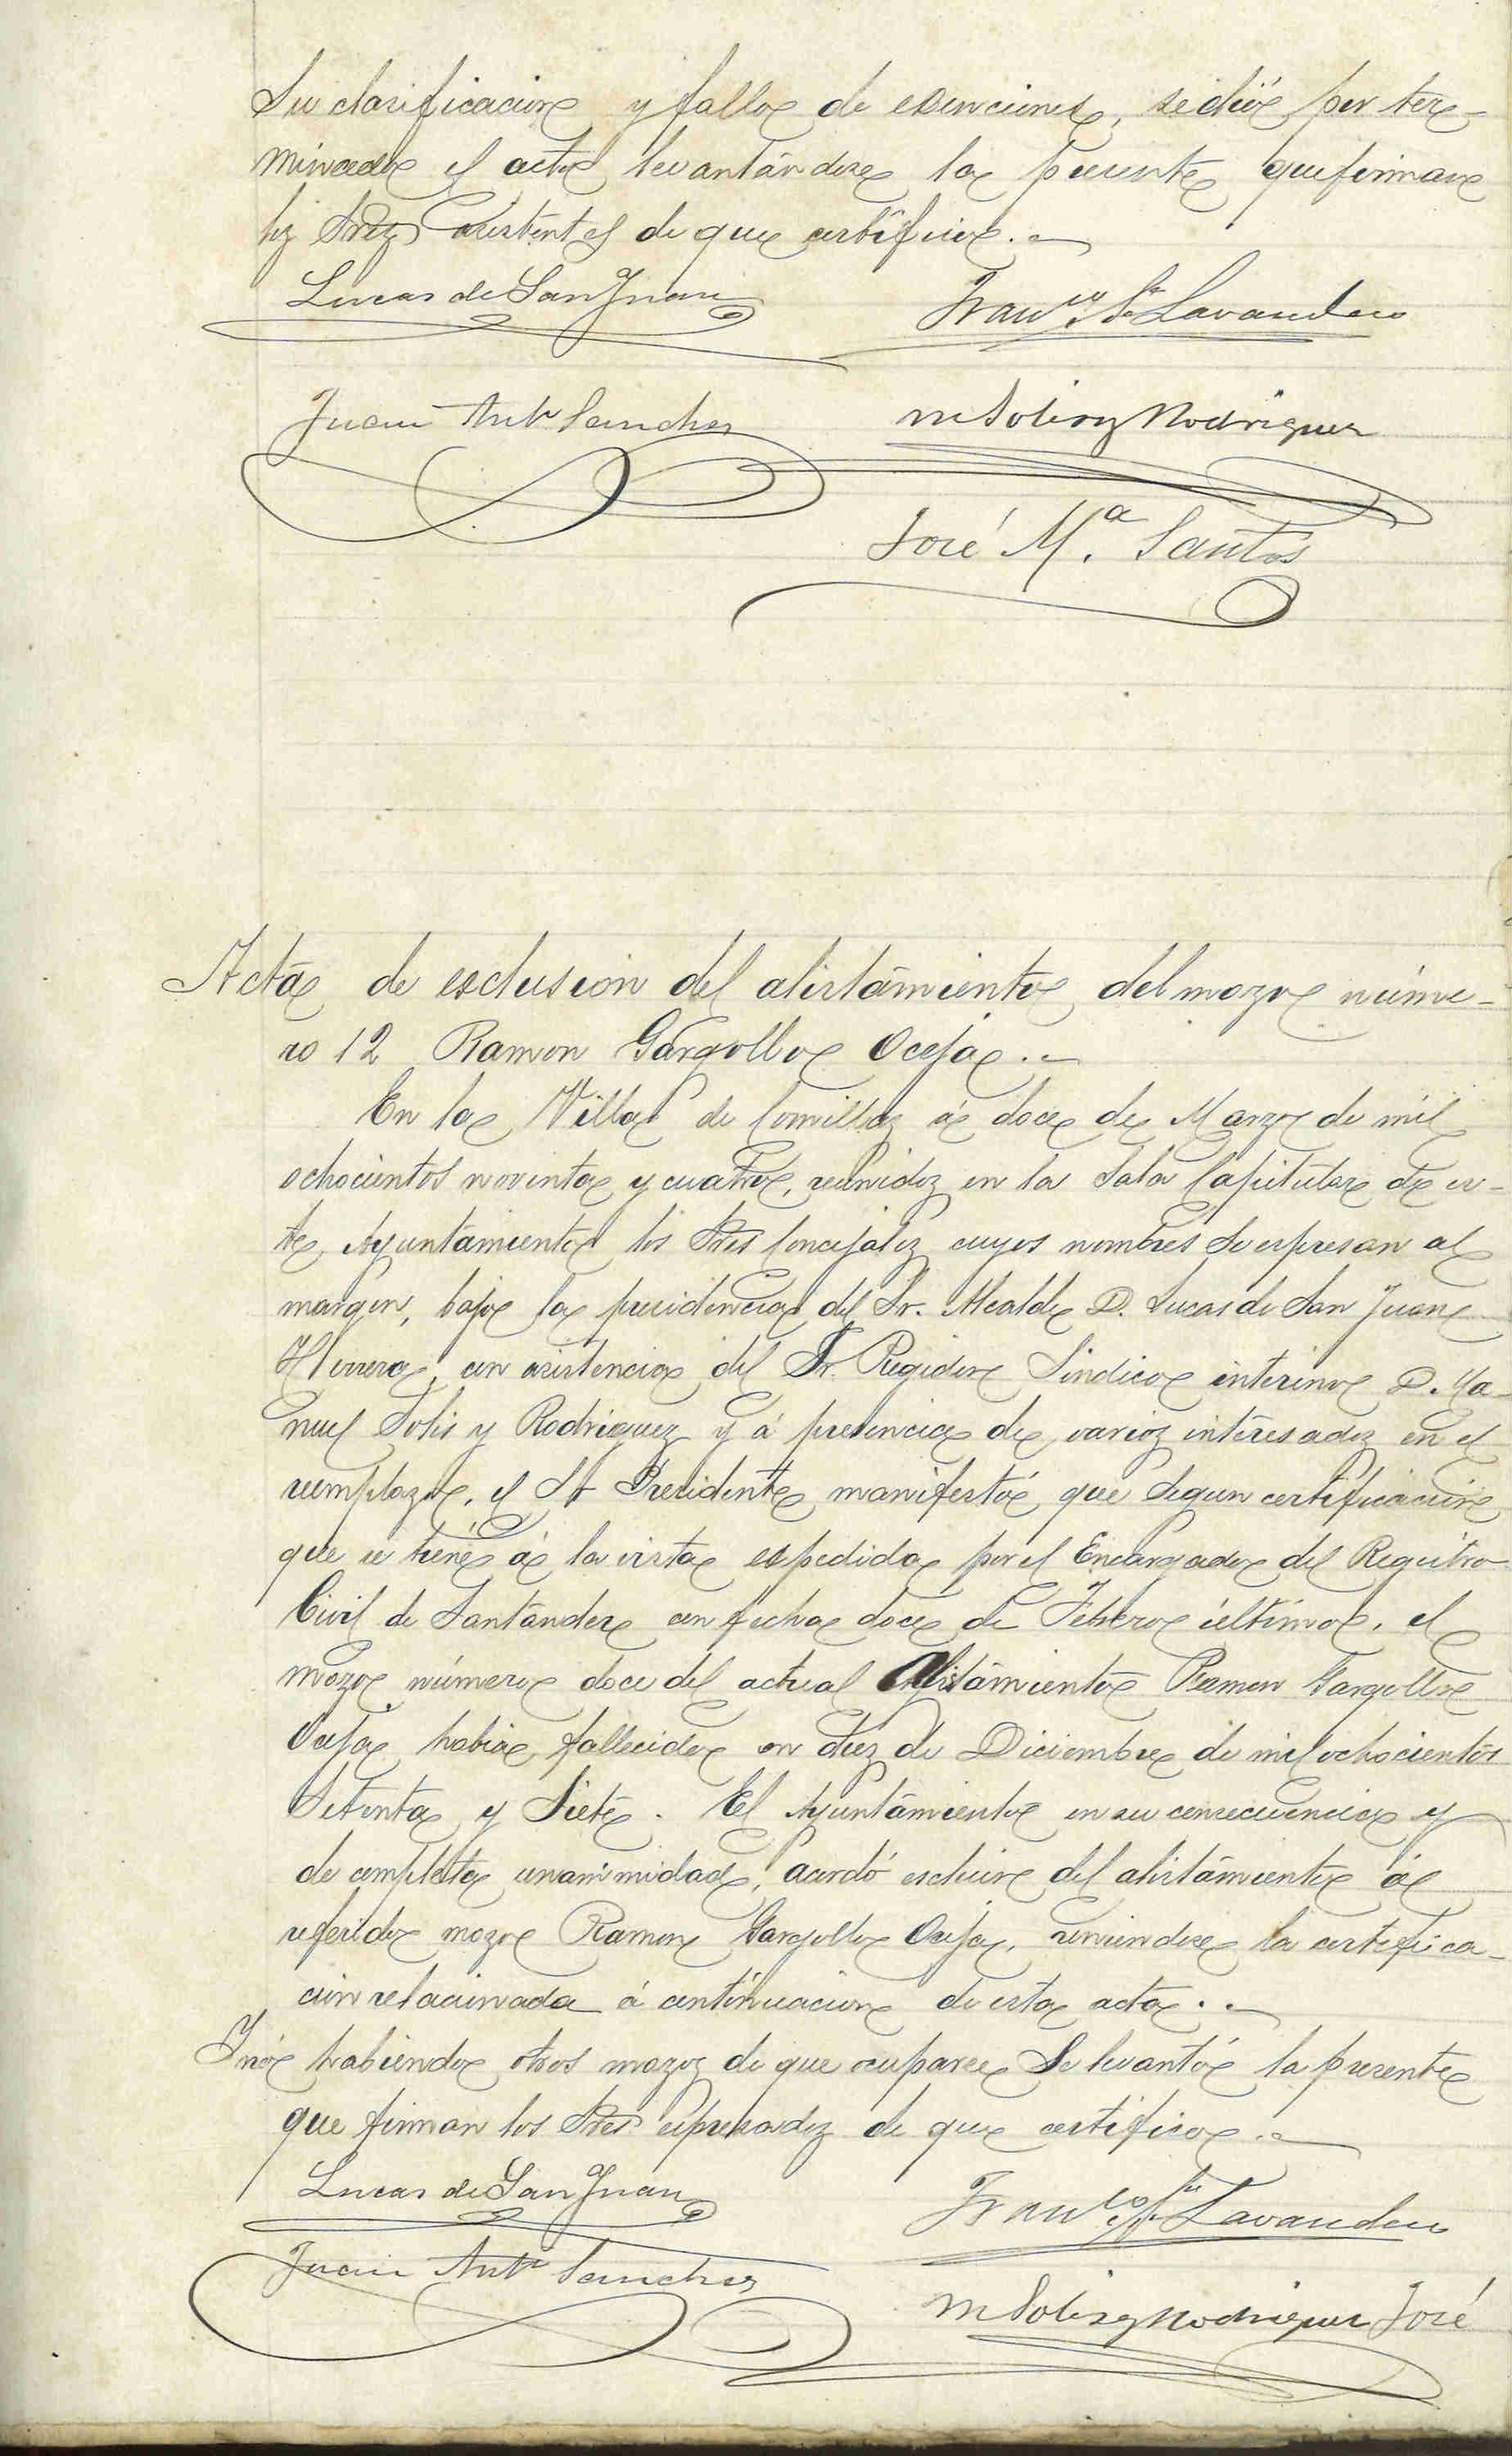 su clasificacion y fallo de esenciones, se dió por ter-
minado el acto levantándose la presente que firman
los Sres asistentes de que certifico.
Lucas de San Juan
Franco Sn Lavandero
Juan Anto Sanchez
M Solis y Rodriguez
José M.a Santos
Acta de esclusion del alistamiento del mozo núme-
ro 12 Ramon Gargollo Oceja.
En la Villa de Comillas á doce de Marzo de mil
ochocientos noventa y cuatro, reunidos en la Sala Capitular de es-
te Ayuntamiento los Sres Concejales cuyos nombres se espresan al
margen, bajo la presidencia del Sr. Alcalde D. Lucas de San Juan
Herrera, con asistencia del Sr. Regidor Sindico interino D. Ma-
nuel Solis y Rodriguez y á presencia de varios interesados en el
reemplazo, el Sr Presidente manifestó que segun certificacion
que se tiene á la vista espedida por el Encargado del Registro
Civil de Santander con fecha doce de Febrero último, el
mozo número doce del actual Alistamiento Ramon Gargollo
Oceja habia fallecido en diez de Diciembre de mil ochocientos
Setenta y Siete. El Ayuntamiento en su consecuencia y
de completa unanimidad, acordó escluir del alistamiento al
referido mozo Ramon Gargollo Oceja, uniendose la certifica-
cion relacionada á continuacion de esta acta.
Y nó habiendo otros mozos de que ocuparse se levantó la presente
que firman los Sres espresados de que certifico.
Lucas de San Juan
Franco Sn Lavandero
Juan Anto Sanchez
M Solis y Rodriguez José